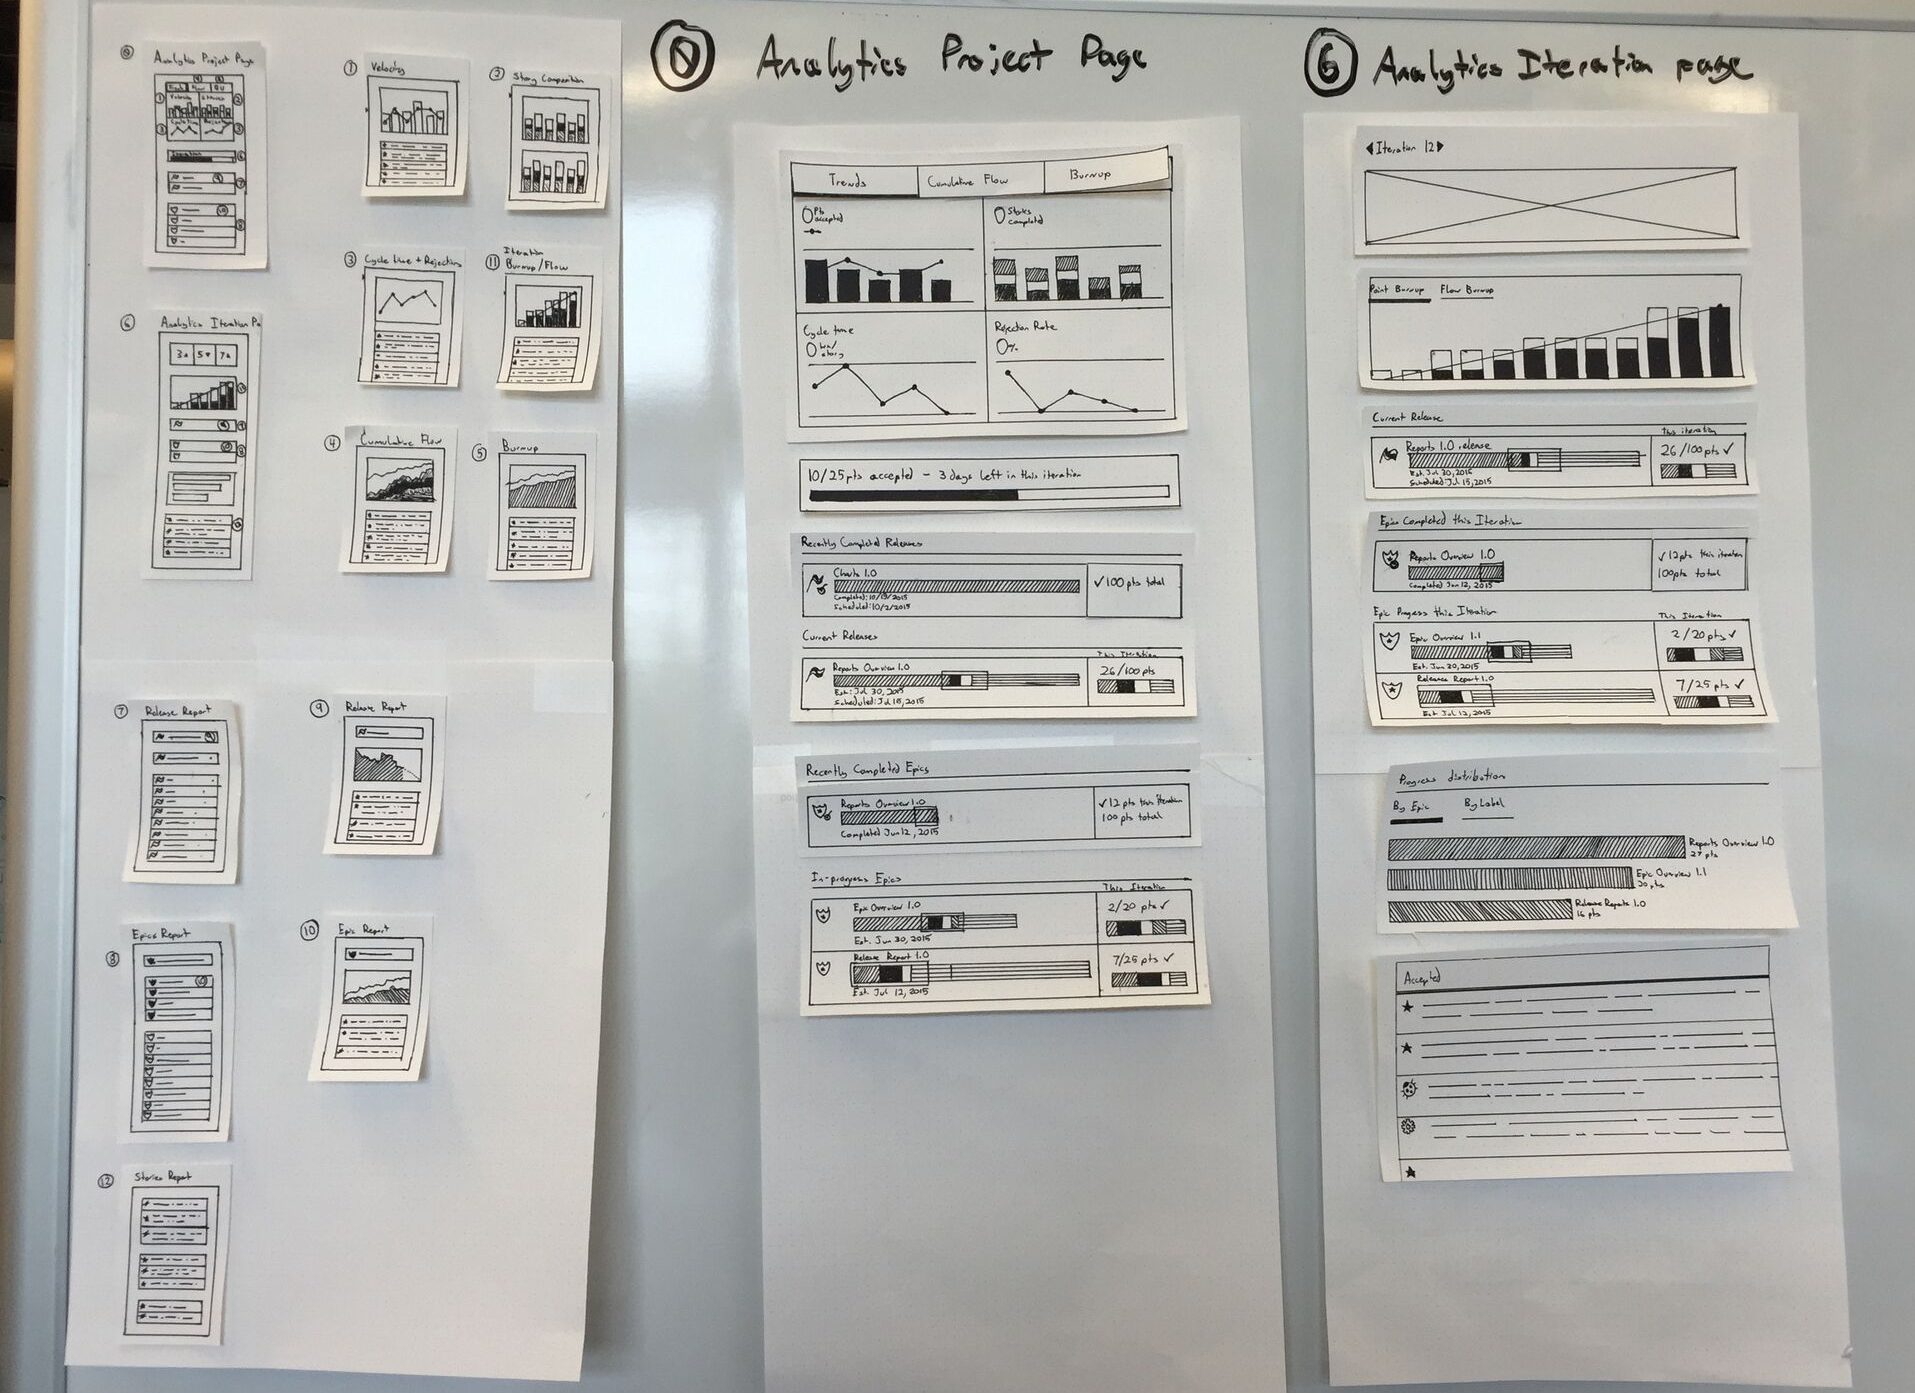 0 Analytics Project Page
6 Analytics Iteration page
0 Analytics Project Page
1 Velocity
2 Story Composition
3 Cycle time + Rejection
11 Iteration
Burnup/Flow
6 Analytics Iteration Pa
3 5 7
4 Cumulative Flow
5 Burnup
7 Release Report
9 Release Report
8 Epics Report
10 Epic Report
12 Stories Report
Trends
Cumulative Flow
Burnup
0 Pts
accepted
0 Stories
completed
Cycle time
0 hrs/
story
Rejection Rate
0%
10/25pts accepted - 3 days left in this iteration
Recently Completed Releases
Charts 1.0
Completed: 10/13/2015
Scheduled: 10/2/2015
✓100 pts total
Current Releases
This Iteration
Reports Overview 1.0
Est: Jul 30, 2015
Scheduled: Jul 15, 2015
26/100 pts
Recently Completed Epics
Reports Overview 1.0
Completed Jun 12, 2015
✓12 pts this iteration
100 pts total
In-progress Epics
This Iteration
Epic Overview 1.0
Est. Jun 30, 2015
2/20 pts ✓
Release Report 1.0
Est. Jul 12, 2015
7/25 pts ✓
◀Iteration 12▶
Point Burnup
Flow Burnup
Current Release
This iteration
Reports 1.0 release
Est. Jul 30, 2015
Scheduled: Jul 15, 2015
26/100pts ✓
Epics Completed this Iteration
Reports Overview 1.0
Completed Jun 12, 2015
✓12pts this iteration
100pts total
Epic Progress this Iteration
This Iteration
Epic Overview 1.1
Est. Jun 30, 2015
2/20 pts ✓
Release Report 1.0
Est Jul 12, 2015
7/25 pts ✓
Progress distribution
By Epic
By Label
Reports Overview 1.0
27 pts
Epic Overview 1.1
20 pts
Release Reports 1.0
16 pts
Accepted